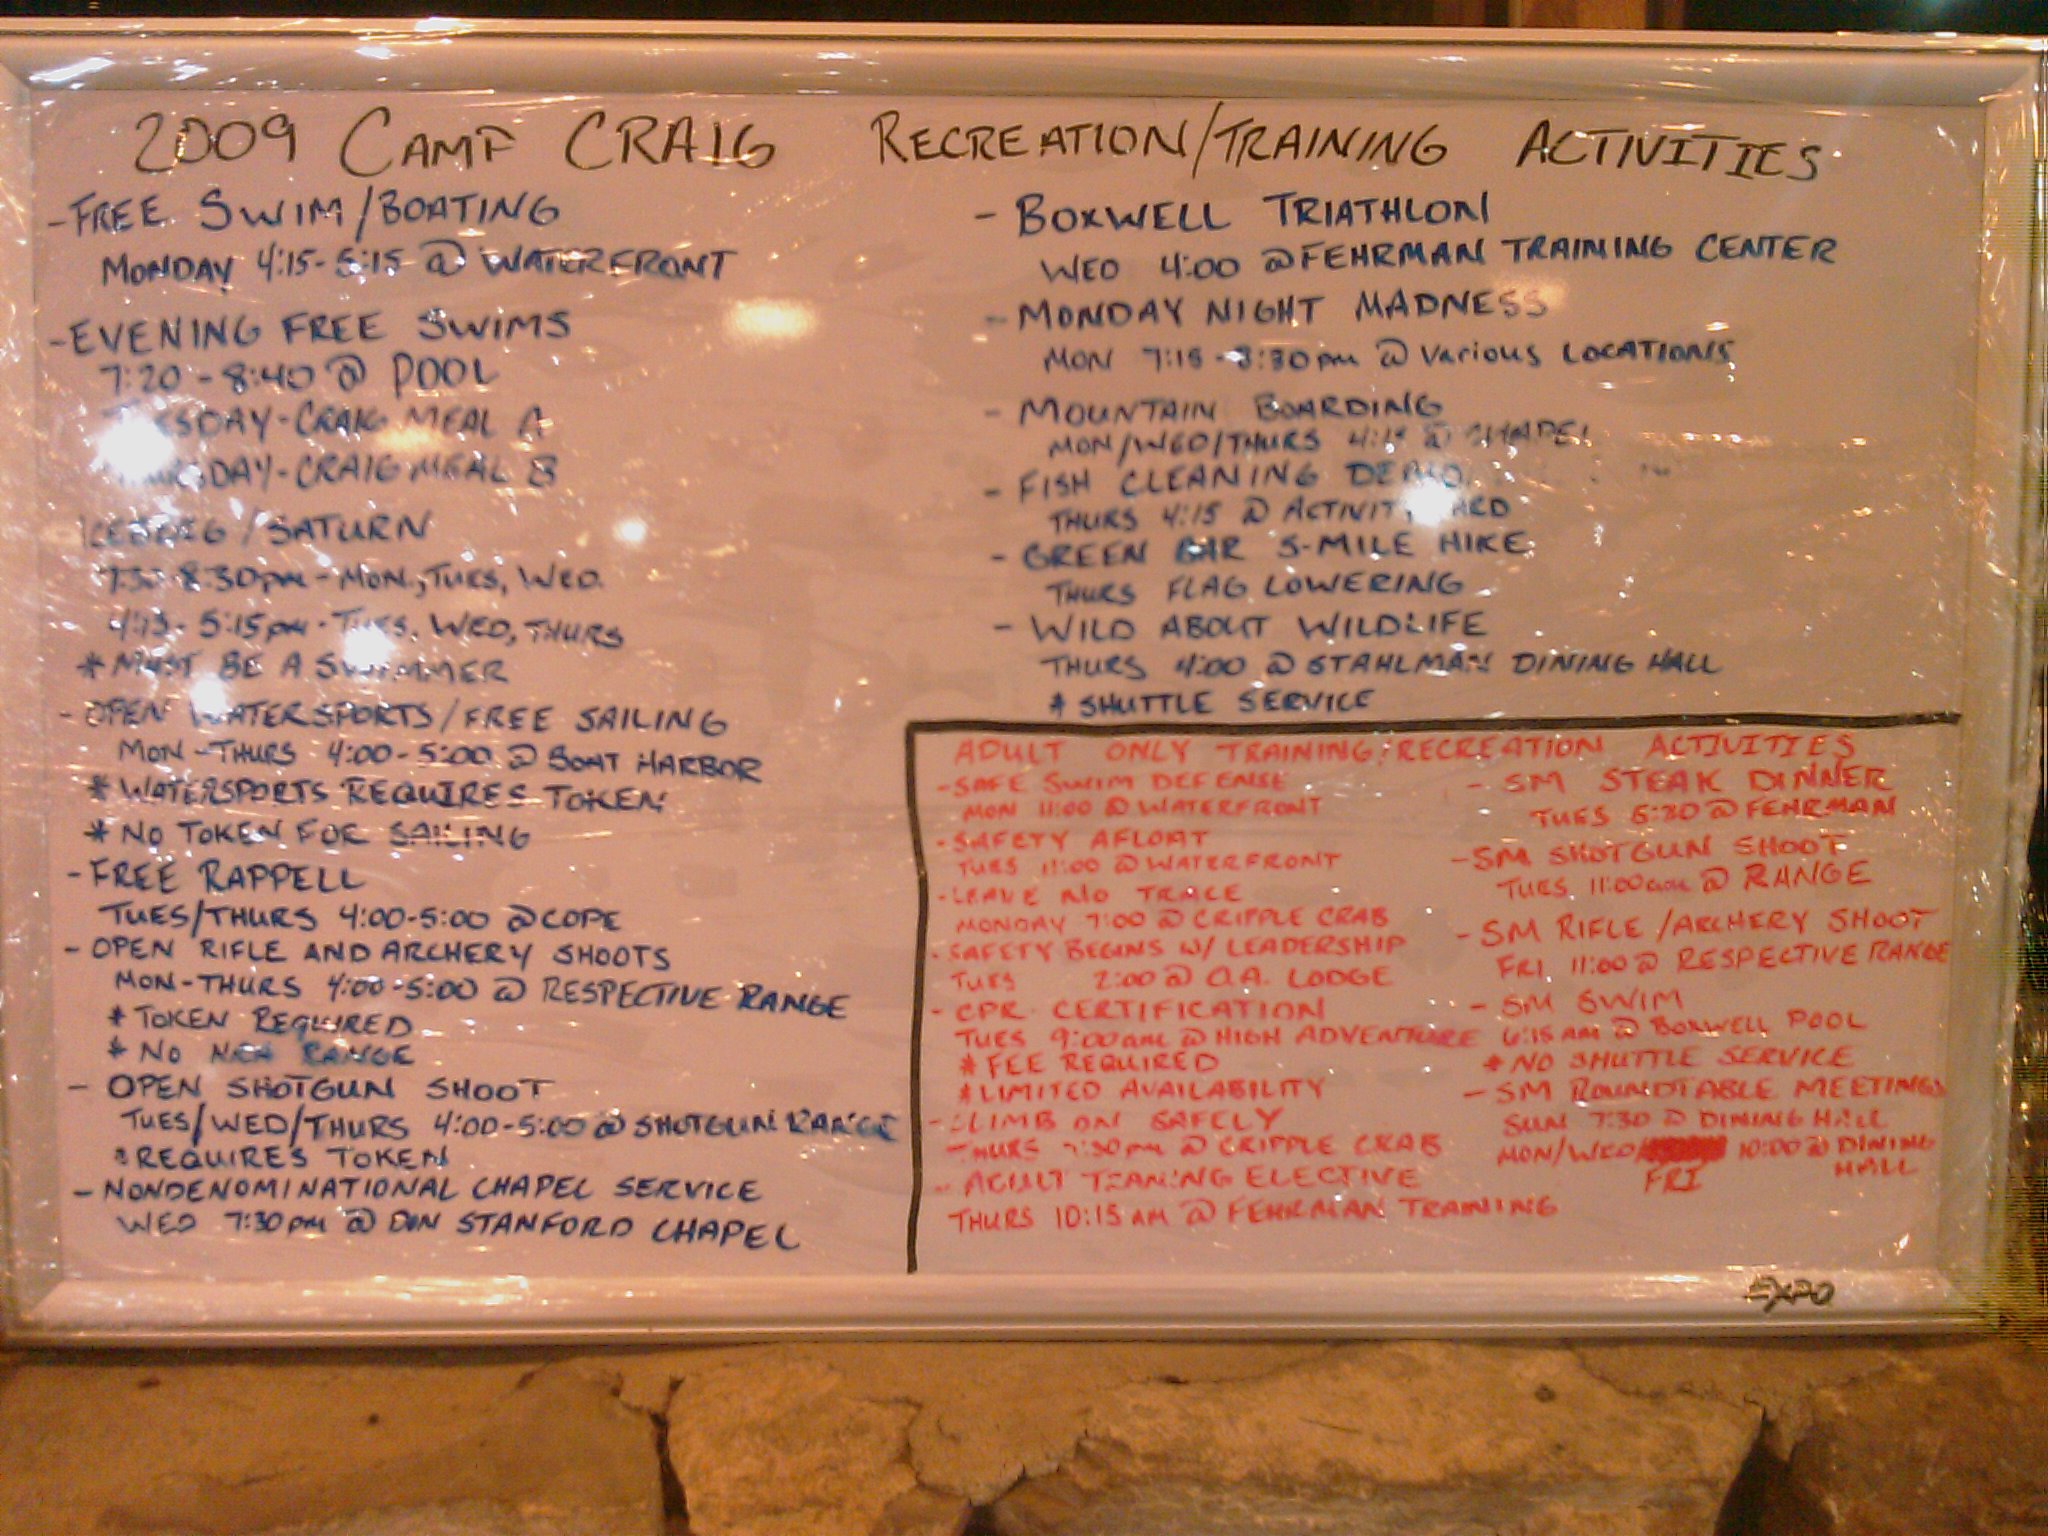 2009 CAMP CRAIG RECREATION/TRAINING ACTIVITIES
- FREE SWIM/BOATING
MONDAY 4:15-5:15 @ WATERFRONT
- EVENING FREE SWIMS
7:20 - 8:40 @ POOL
TUESDAY - CRAIG MEAL A
THURSDAY - CRAIG MEAL B
ICEBERG / SATURN
8:30pm - MON, TUES, WED.
5:15pm - TUES, WED, THURS
* MUST BE A SWIMMER
- OPEN WATERSPORTS / FREE SAILING
MON - THURS 4:00-5:00 @ BOAT HARBOR
* WATERSPORTS REQUIRES TOKEN
* NO TOKEN FOR SAILING
- FREE RAPPELL
TUES/THURS 4:00-5:00 @ COPE
- OPEN RIFLE AND ARCHERY SHOOTS
MON-THURS 4:00-5:00 @ RESPECTIVE RANGE
* TOKEN REQUIRED
* NO NRA RANGE
- OPEN SHOTGUN SHOOT
TUES/WED/THURS 4:00-5:00 @ SHOTGUN RANGE
* REQUIRES TOKEN
- NONDENOMINATIONAL CHAPEL SERVICE
WED 7:30pm @ DON STANFORD CHAPEL
- BOXWELL TRIATHLON
WED 4:00 @ FEHRMAN TRAINING CENTER
- MONDAY NIGHT MADNESS
MON 7:15 - 8:30pm @ VARIOUS LOCATIONS
- MOUNTAIN BOARDING
MON/WED/THURS 4:15 @ CHAPEL
- FISH CLEANING DEMO
THURS 4:15 @ ACTIVITY
- GREEN BAR 5-MILE HIKE
THURS FLAG LOWERING
- WILD ABOUT WILDLIFE
THURS 4:00 @ STAHLMAN DINING HALL
* SHUTTLE SERVICE
ADULT ONLY TRAINING/RECREATION ACTIVITIES
- SAFE SWIM DEFENSE
MON 11:00 @ WATERFRONT
- SAFETY AFLOAT
TUES 11:00 @ WATERFRONT
- LEAVE NO TRACE
MONDAY 7:00 @ CRIPPLE CRAB
- SAFETY BEGINS W/ LEADERSHIP
TUES 2:00 @ O.A. LODGE
- CPR CERTIFICATION
TUES 9:00am @ HIGH ADVENTURE
* FEE REQUIRED
* LIMITED AVAILABILITY
- CLIMB ON SAFELY
THURS 7:30pm @ CRIPPLE CRAB
- ADULT TRAINING ELECTIVE
THURS 10:15 AM @ FEHRMAN TRAINING
- SM STEAK DINNER
TUES 5:30 @ FEHRMAN
- SM SHOTGUN SHOOT
TUES 11:00am @ RANGE
- SM RIFLE / ARCHERY SHOOT
FRI 11:00 @ RESPECTIVE RANGE
- SM SWIM
6:15 AM @ BOXWELL POOL
* NO SHUTTLE SERVICE
- SM ROUNDTABLE MEETINGS
SUN 7:30 @ DINING HALL
MON/WED/ 10:00 @ DINING
FRI HALL
EXPO